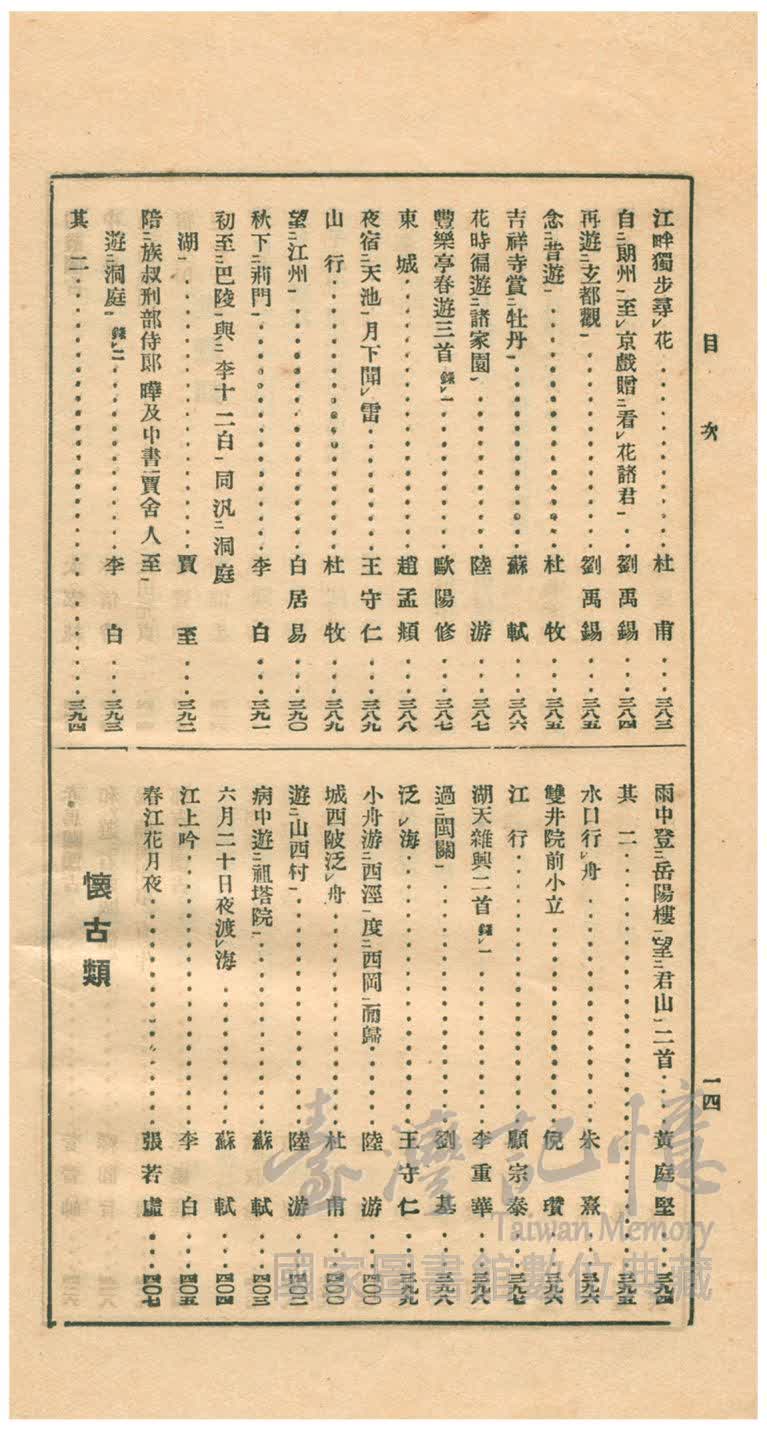 目次
一四
江畔獨步尋レ花 杜甫 三八三
自二朗州一至レ京戲贈二看レ花諸君一 劉禹錫 三八四
再遊二玄都觀一 劉禹錫 三八五
念二昔遊一 杜牧 三八五
吉祥寺賞二牡丹一 蘇軾 三八六
花時徧遊二諸家園一 陸游 三八七
豐樂亭春遊三首錄レ一 歐陽修 三八七
東城 趙孟頫 三八八
夜宿二天池一月下聞レ雷 王守仁 三八九
山行 杜牧 三八九
望二江州一 白居易 三九〇
秋下二荊門一 李白 三九一
初至二巴陵一與二李十二白一同汎二洞庭
湖一 賈至 三九二
陪二族叔刑部侍郎曄及中書賈舍人至一
遊二洞庭一錄レ二 李白 三九三
其二 三九四
雨中登二岳陽樓一望二君山一二首 黃庭堅 三九四
其二 三九五
水口行レ舟 朱熹 三九六
雙井院前小立 倪瓚 三九六
江行 顧宗泰 三九七
湖天雜興二首錄レ一 李重華 三九八
過二閩關一 劉基 三九八
泛レ海 王守仁 三九九
小舟游二西涇一度二西岡一而歸 陸游 四〇〇
城西陂泛レ舟 杜甫 四〇〇
遊二山西村一 陸游 四〇二
病中遊二祖塔院一 蘇軾 四〇三
六月二十日夜渡レ海 蘇軾 四〇四
江上吟 李白 四〇五
春江花月夜 張若虛 四〇七
懷古類
臺灣記憶
Taiwan Memory
國家圖書館數位典藏